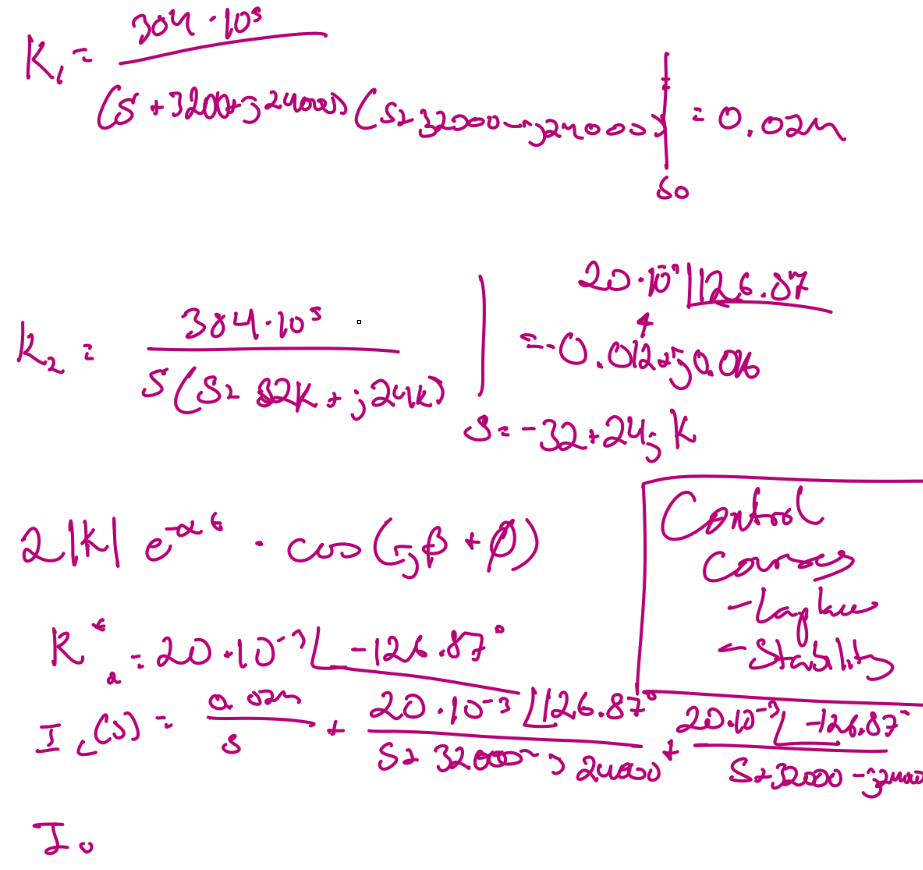 K₁ = 384·10⁵ / (s+3200+j24000)(s+32000-j24000) | s=0 = 0.024
K₂ = 384·10⁵ / s(s+32K+j24K) | s=-32+24j K
20·10⁻³∠126.87
=-0.012+j0.016
2|K| e^-αt · cos(jβ+Ø)
Control
Courses
-Laplace
-Stability
K₂* = 20·10⁻³∠-126.87°
I_L(s) = 0.02m / s + 20·10⁻³∠126.87° / s+32000-j24000 + 20·10⁻³∠-126.87° / s+32000-j24000
I₀